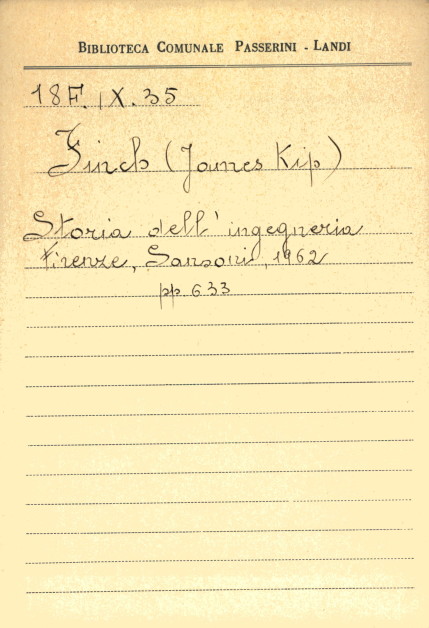 BIBLIOTECA COMUNALE PASSERINI - LANDI
18F. IX. 35
Finch (James Kip)
Storia dell'ingegneria
Firenze, Sansoni, 1962
pp. 633